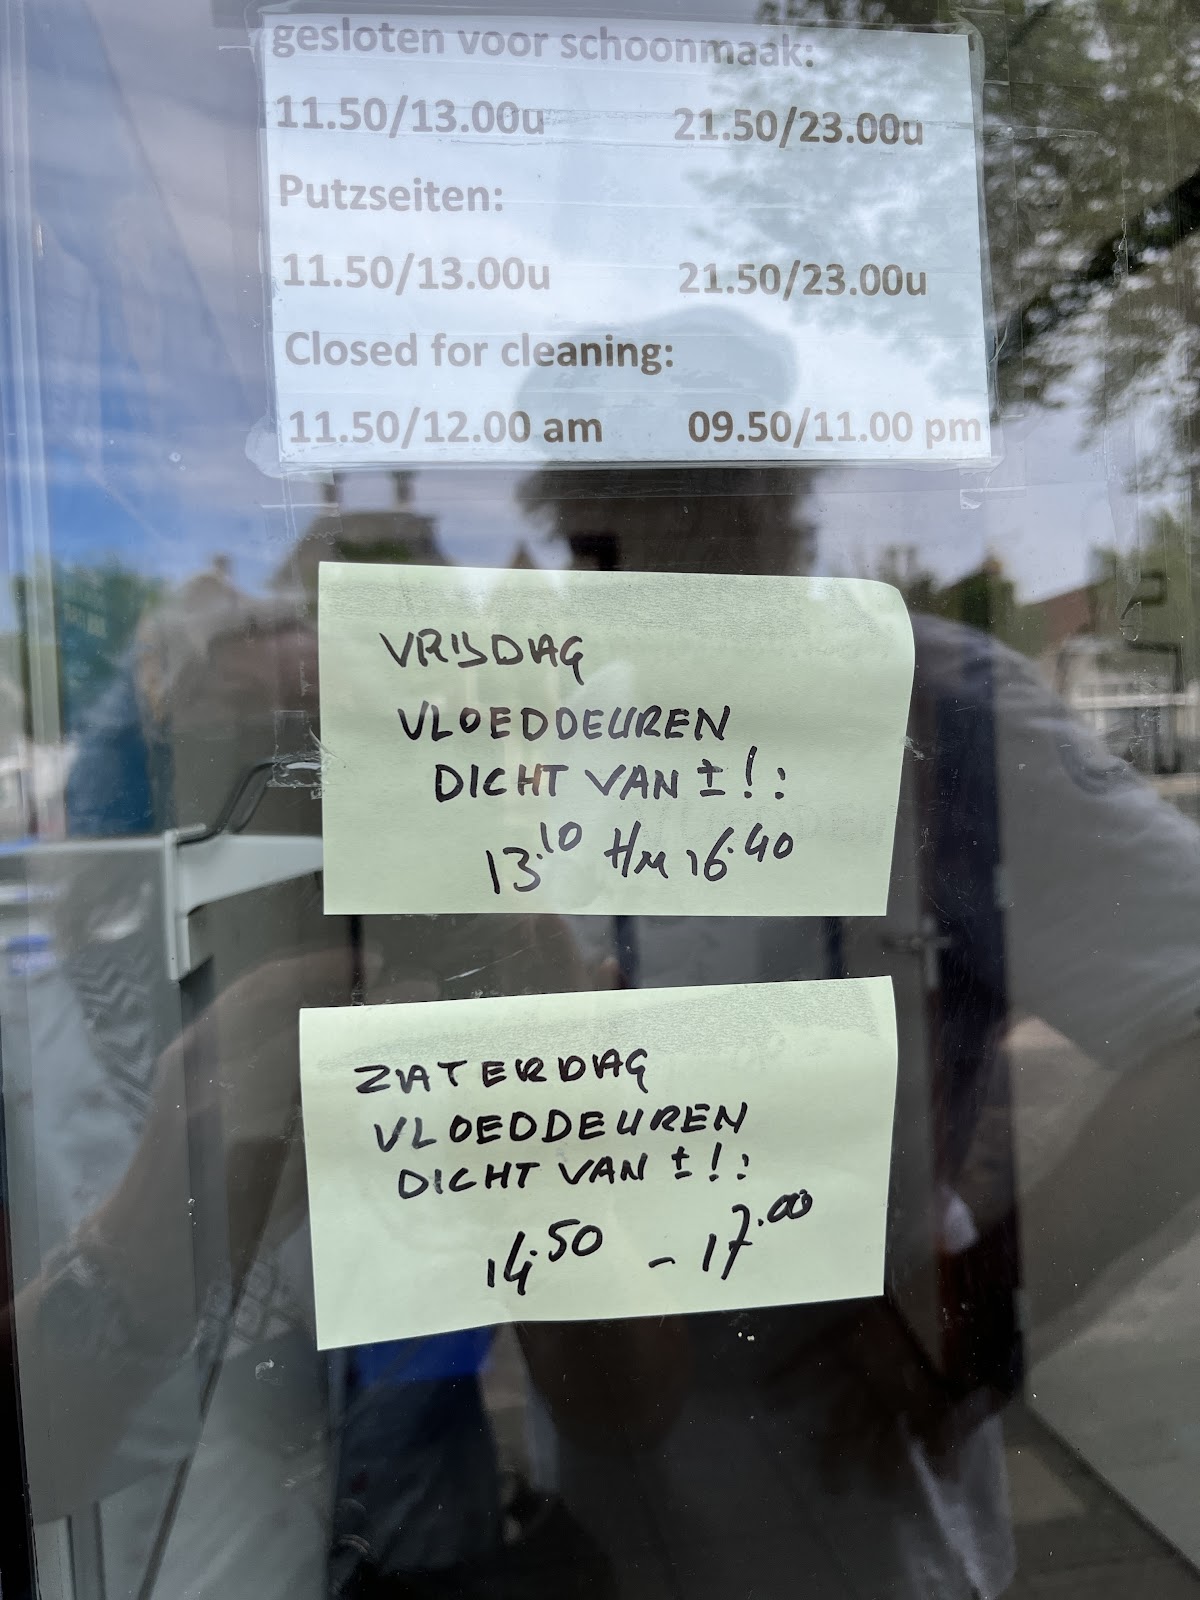 gesloten voor schoonmaak:
11.50/13.00u 21.50/23.00u
Putzseiten:
11.50/13.00u 21.50/23.00u
Closed for cleaning:
11.50/12.00 am 09.50/11.00 pm
VRIJDAG
VLOEDDEUREN
DICHT VAN ± ! :
13.10 t/m 16.40
ZATERDAG
VLOEDDEUREN
DICHT VAN ± ! :
14.50 - 17.00